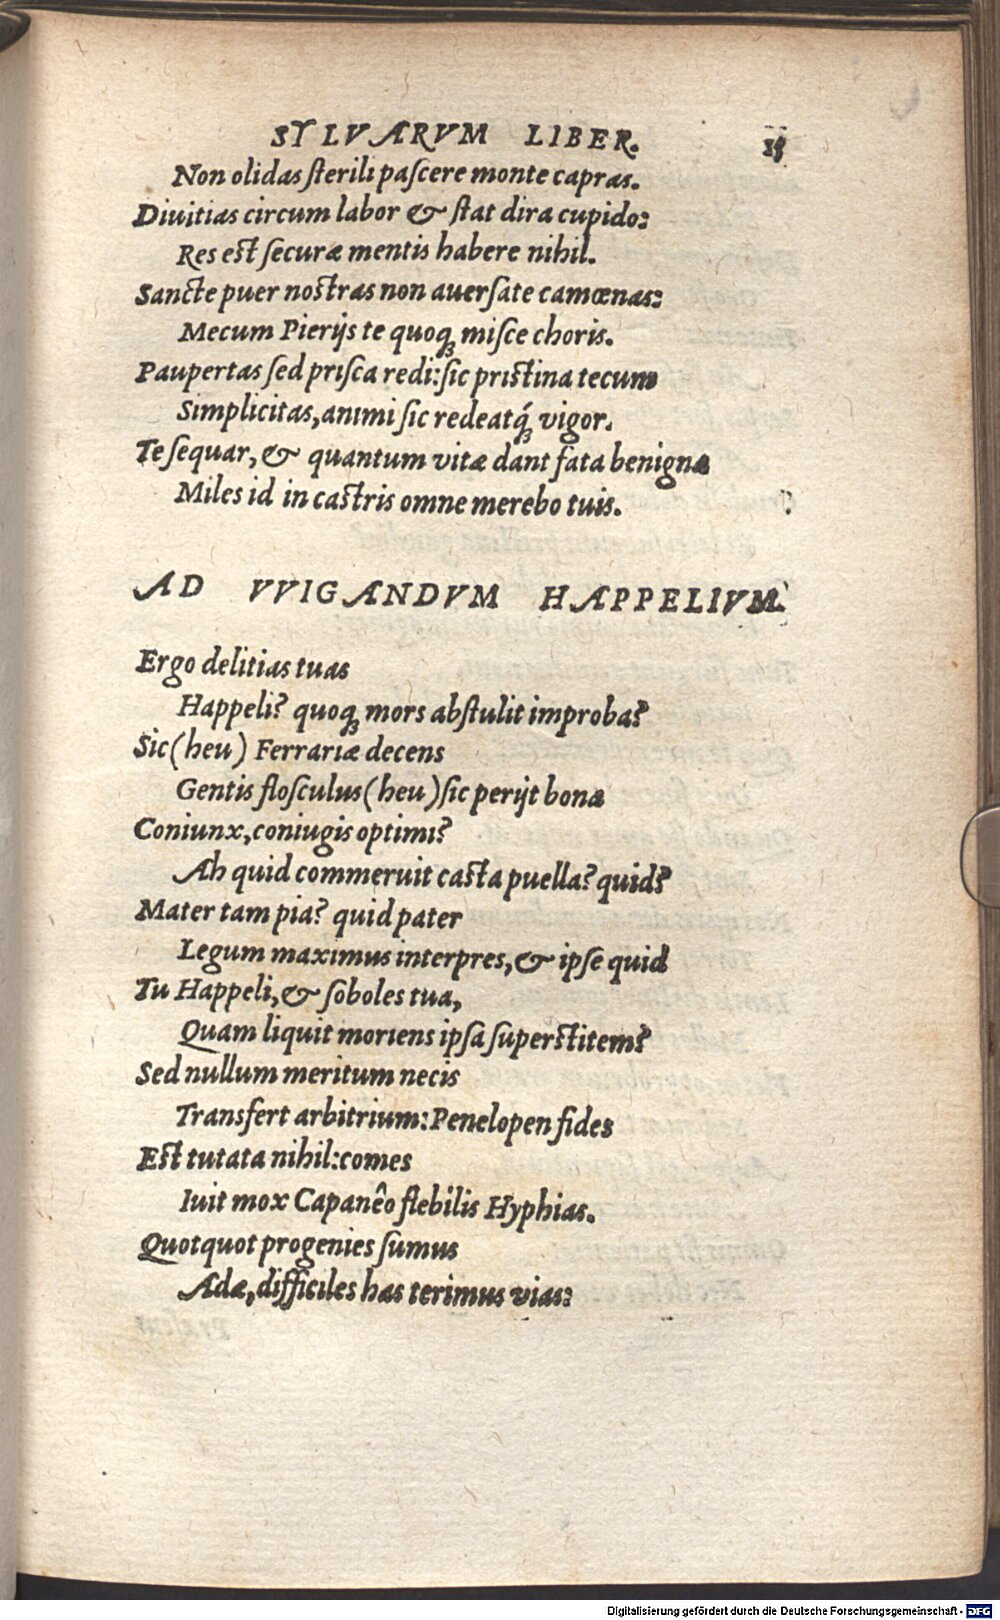 SYLVARVM LIBER.
Non olidas ſterili paſcere monte capras.
Diuitias circum labor & ſtat dira cupido:
Res eſt ſecuræ mentis habere nihil.
Sancte puer noſtras non auerſate camœnas:
Mecum Pierijs te quoq; miſce choris.
Paupertas ſed priſca redi: ſic priſtina tecum
Simplicitas, animi ſic redeatq́; vigor.
Te ſequar, & quantum vitæ dant fata benignæ
Miles id in caſtris omne merebo tuis.
AD VVIGANDVM HAPPELIVM.
Ergo delitias tuas
Happeli? quoq; mors abſtulit improba?
Sic (heu) Ferrariæ decens
Gentis floſculus (heu) ſic perijt bonæ
Coniunx, coniugis optimi?
Ah quid commeruit caſta puella? quid?
Mater tam pia? quid pater
Legum maximus interpres, & ipſe quid
Tu Happeli, & ſoboles tua,
Quam liquit moriens ipſa ſuperſtitem?
Sed nullum meritum necis
Transfert arbitrium: Penelopen fides
Eſt tutata nihil: comes
Iuit mox Capanêo flebilis Hyphias.
Quotquot progenies ſumus
Adæ, difficiles has terimus vias:
Digitalisierung gefördert durch die Deutsche Forschungsgemeinschaft - DFG